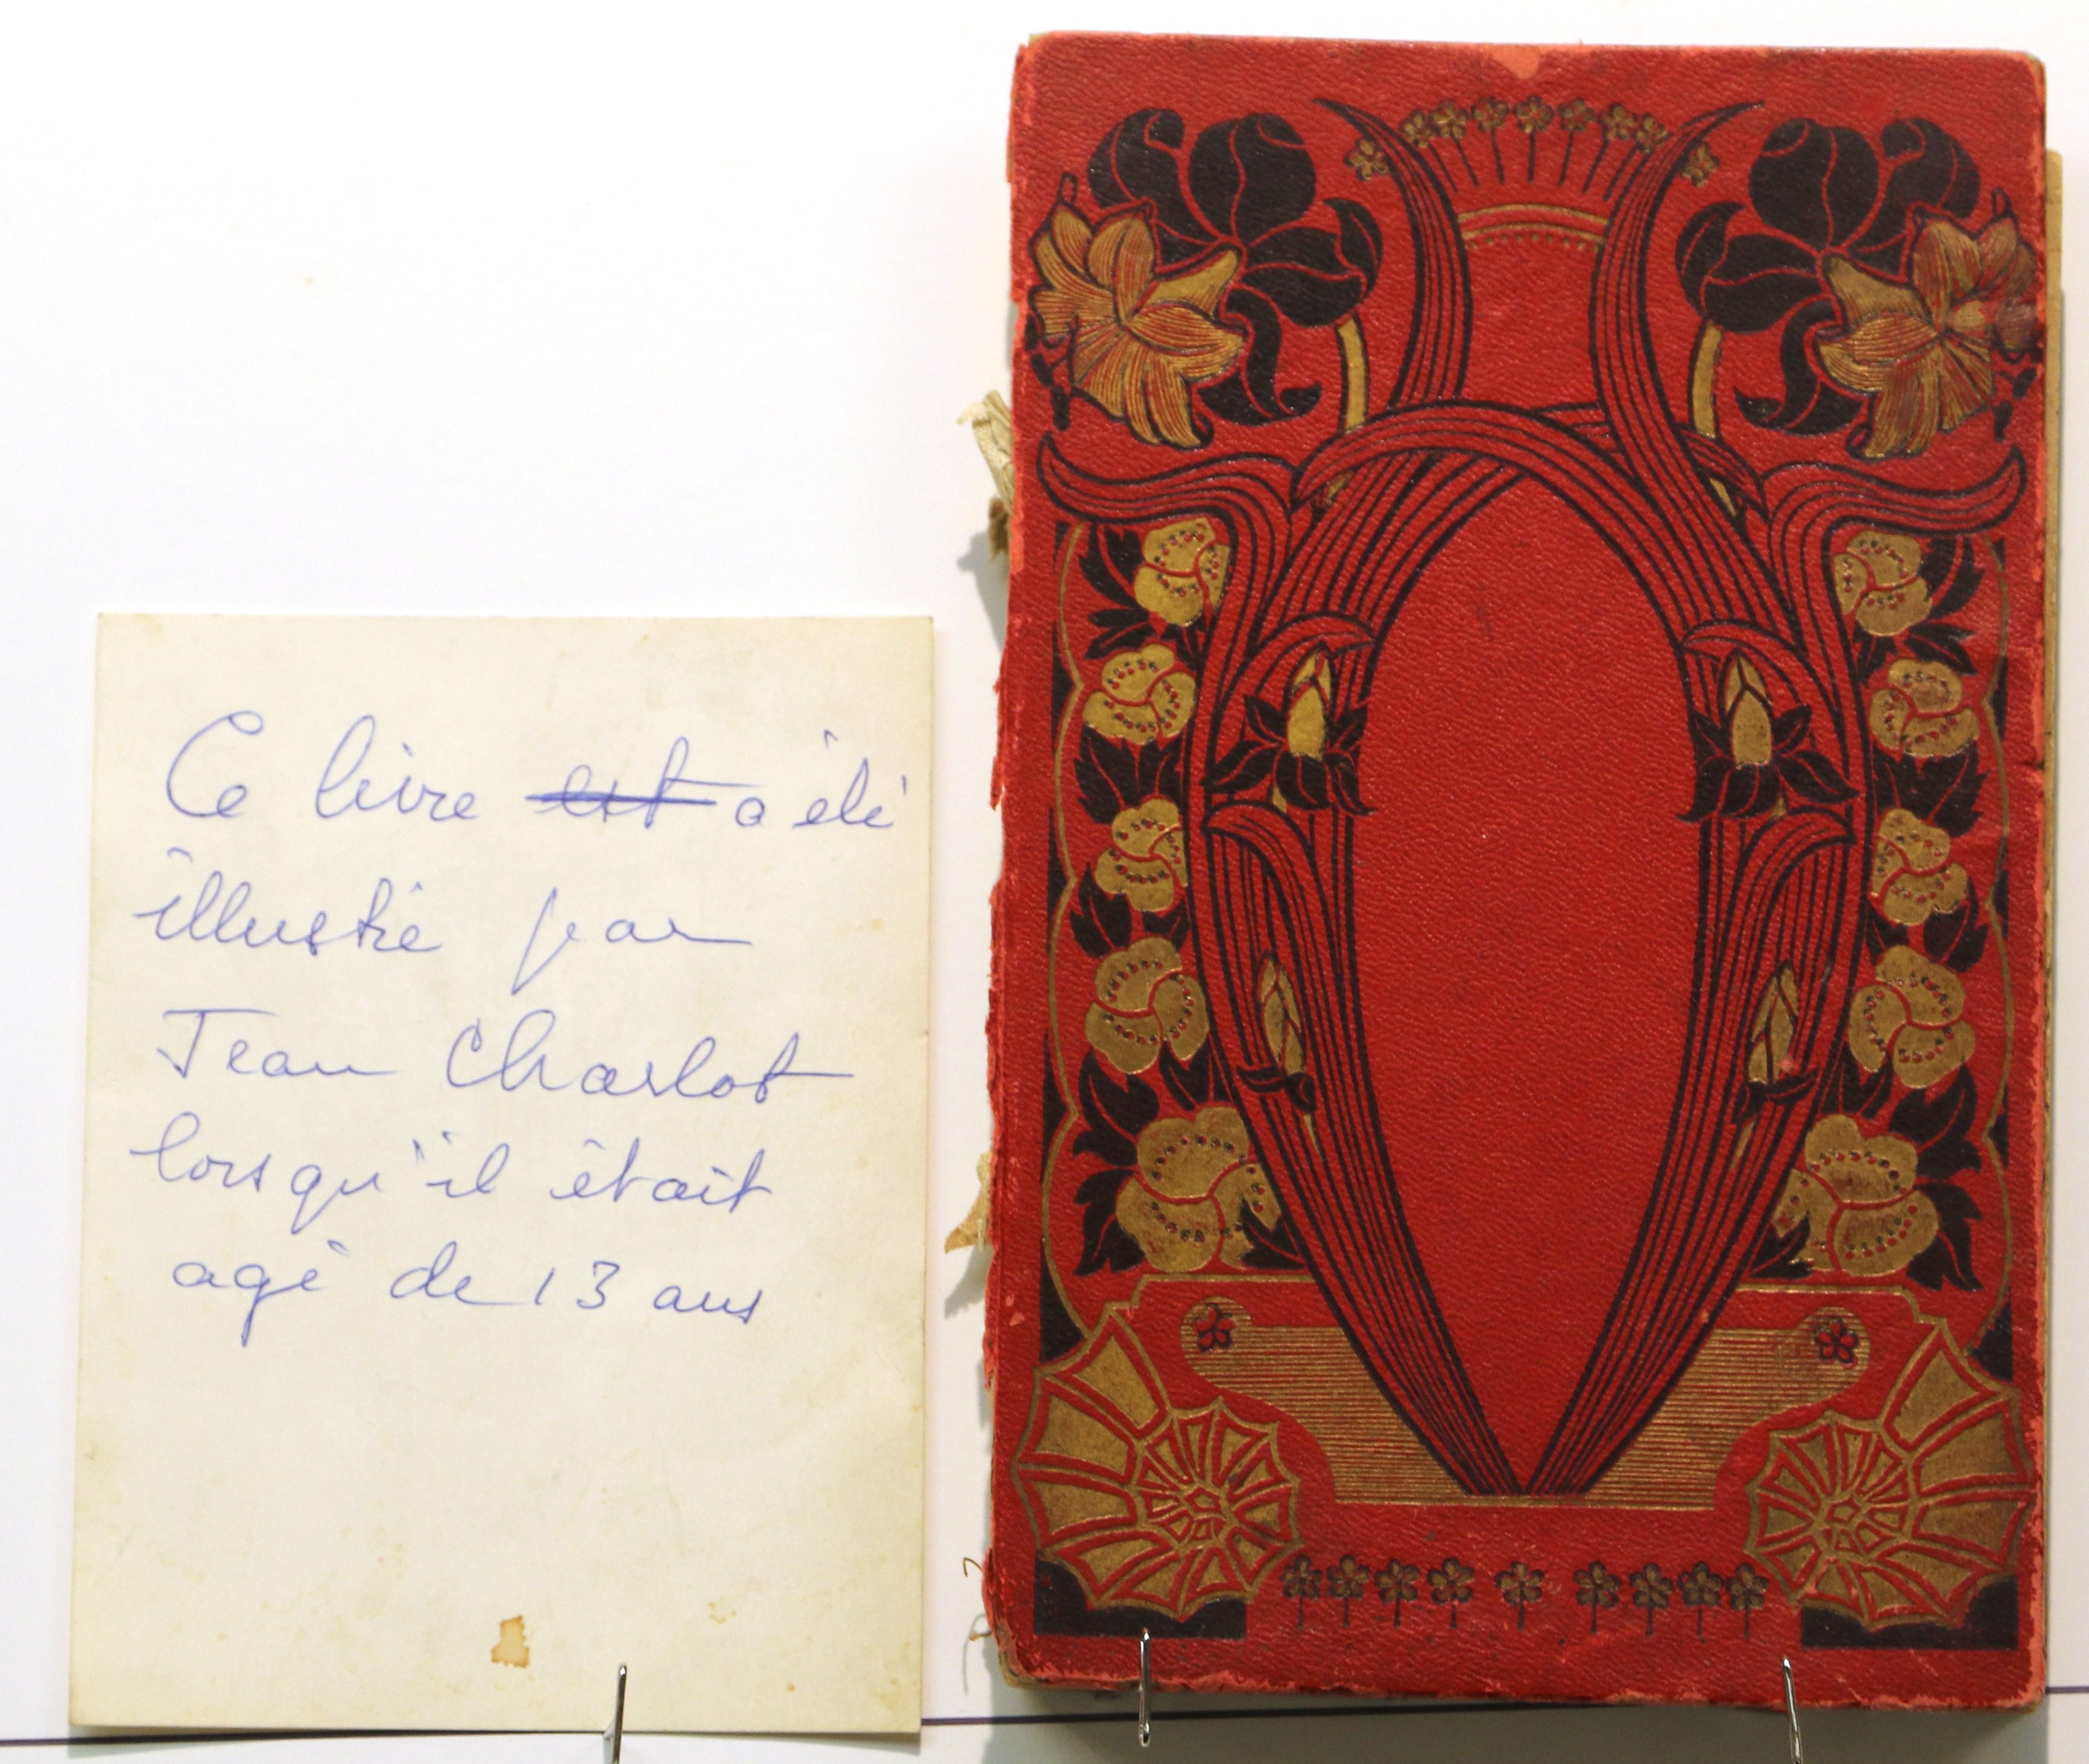 Ce livre ~~est~~ a été
illustré par
Jean Charlot
lorsqu'il était
agé de 13 ans